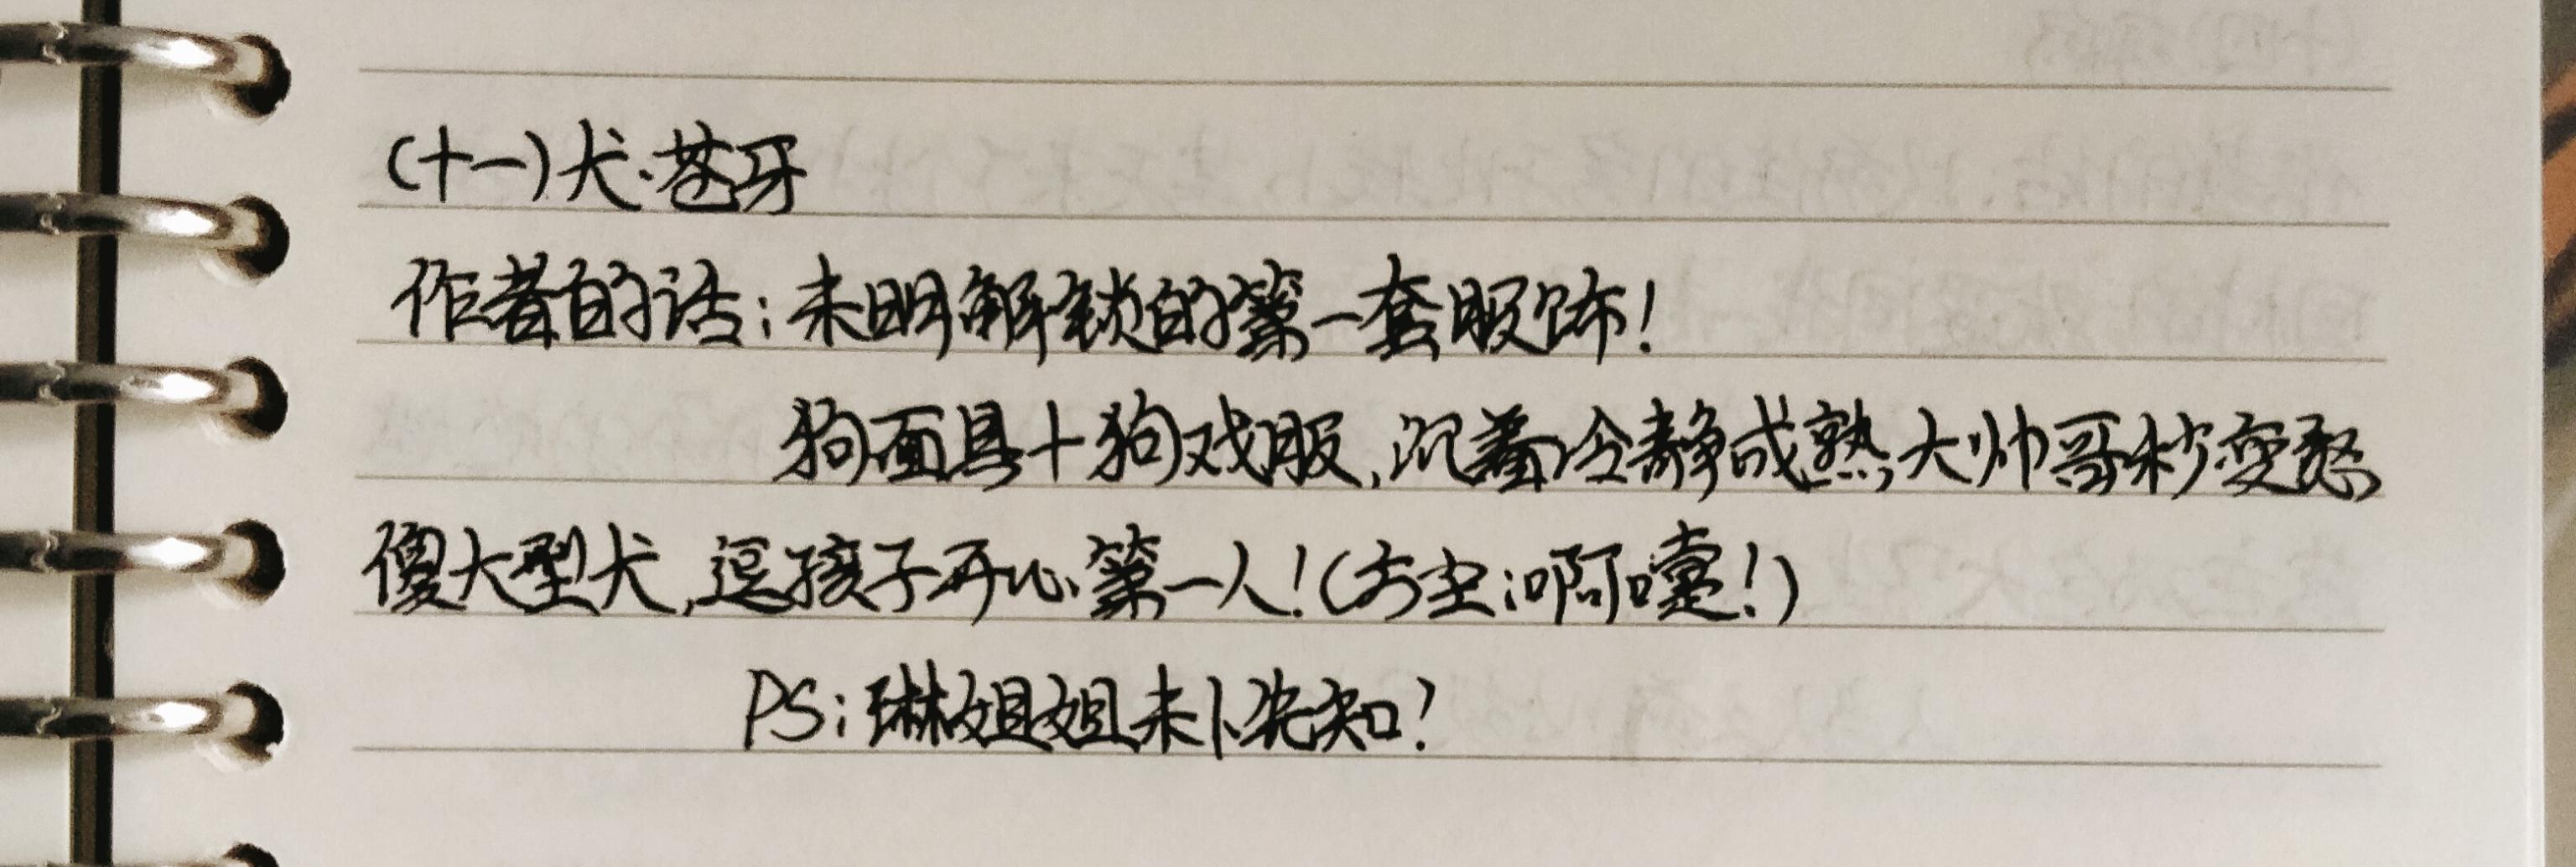 (十一)犬·苍牙
作者的话:未明解锁的第一套服饰!
狗面具+狗戏服,沉着冷静成熟大帅哥秒变憨
傻大型犬,逗孩子开心第一人!(方士:啊嚏!)
PS:琳姐姐未卜先知?